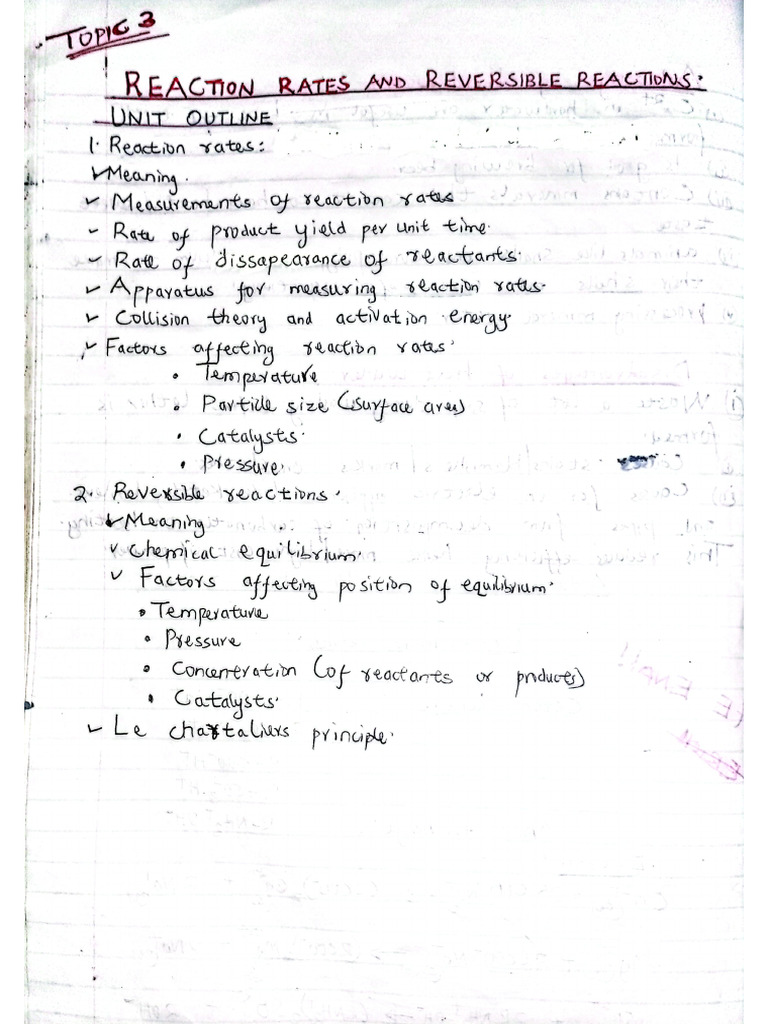 TOPIC 3
REACTION RATES AND REVERSIBLE REACTIONS.
UNIT OUTLINE
1. Reaction rates:
✓ Meaning.
✓ Measurements of reaction rates
✓ Rate of product yield per unit time.
✓ Rate of dissapearance of reactants.
✓ Apparatus for measuring reaction rates.
✓ Collision theory and activation energy.
✓ Factors affecting reaction rates.
• Temperature
• Particle size (surface area)
• Catalysts.
• Pressure.
2. Reversible reactions.
✓ Meaning
✓ chemical equilibrium.
✓ Factors affecting position of equilibrium.
• Temperature
• Pressure
• Concentration (of reactants or products)
• Catalysts.
✓ Le chartaliers principle.